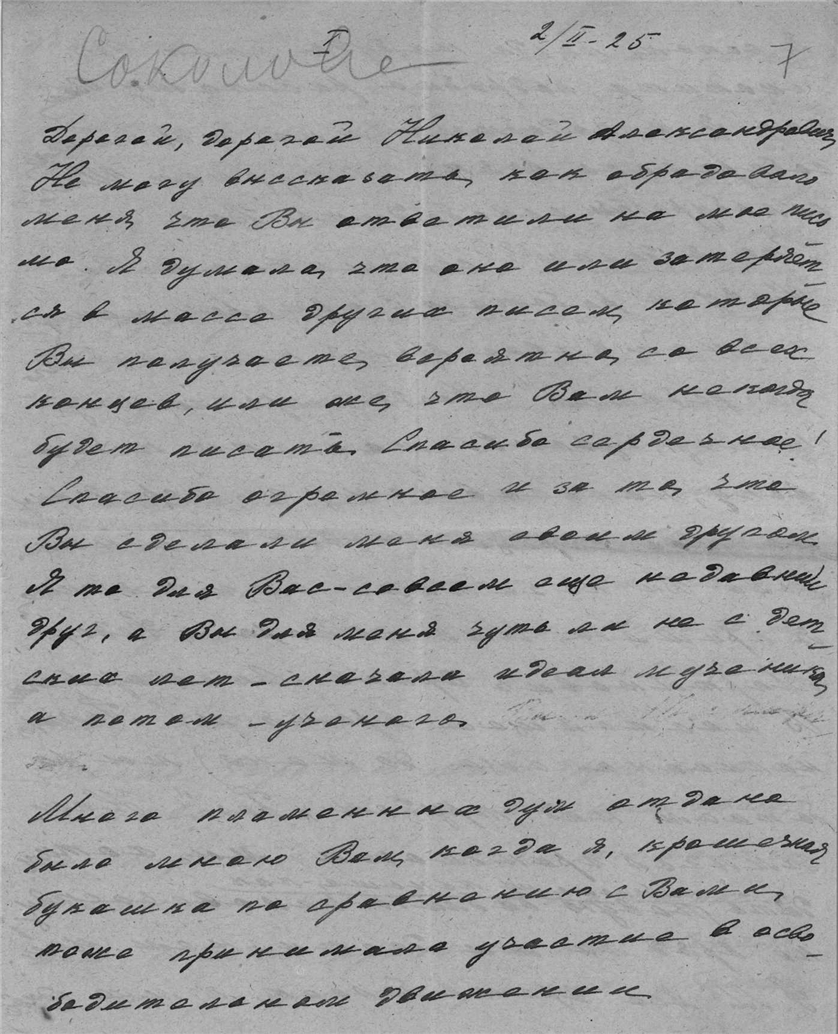 Соколова
I
2/II-25
7
Дорогой, дорогой Николай Александрович,
Не могу высказать, как обрадовало
меня, что Вы ответили на мое пись
мо. Я думала, что оно или затеряет
ся в массе других писем, которые
Вы получаете, вероятно, со всех
концов, или же, что Вам некогда
будет писать. Спасибо сердечное!
Спасибо огромное и за то, что
Вы сделали меня своим другом.
Я то для Вас – совсем еще недавний
друг, а Вы для меня чуть ли не с дет-
ских лет – сначала идеал мученика,
а потом – ученого.
Много пламенных дум отдано
было мною Вам, когда я, крошечная
букашка по сравнению с Вами,
тоже принимала участие в осво-
бодительном движении.